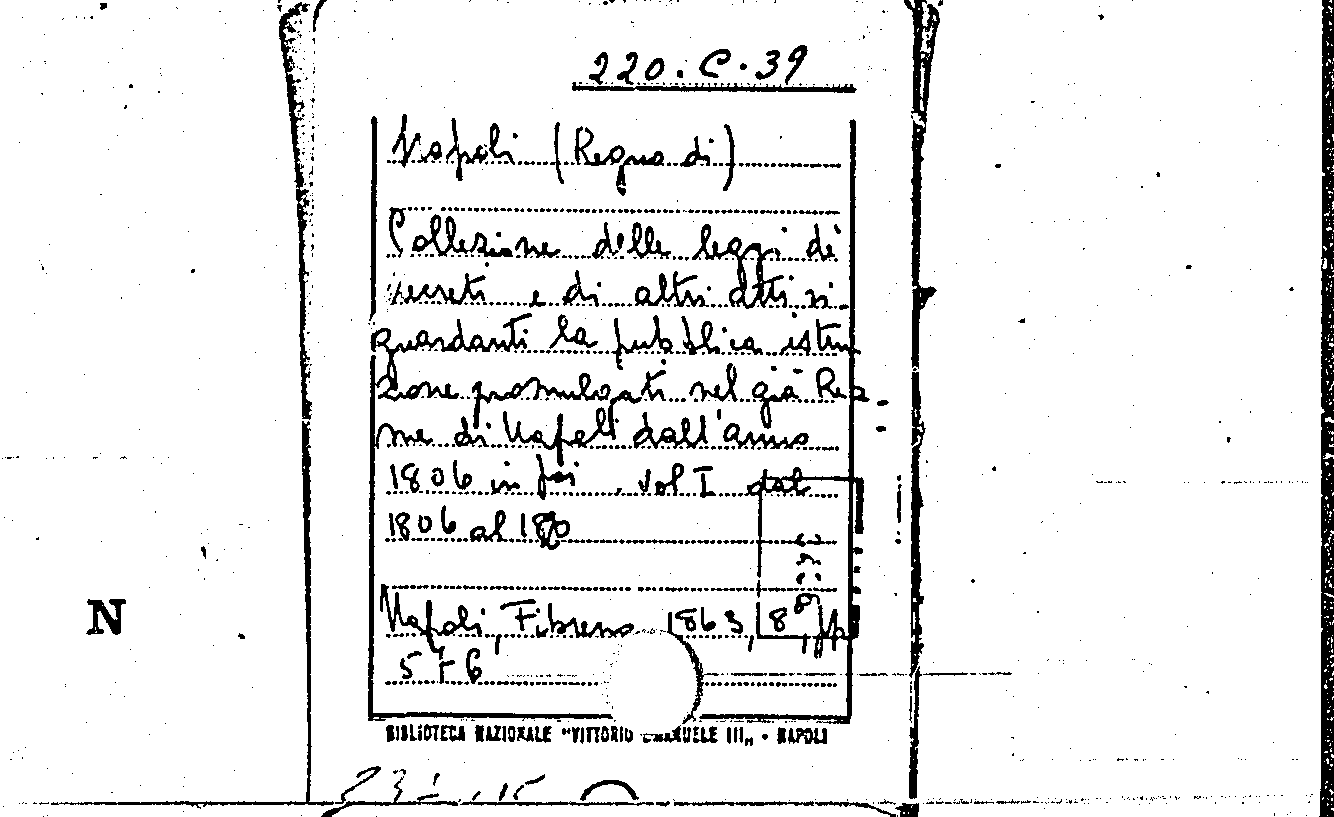 220.C.39
Napoli (Regno di)
Collezione delle leggi de
decreti e di altri atti ri-
guardanti la pubblica istru
zione promulgati nel già Rea
me di Napoli dall'anno
1806 in poi . vol I dal
1806 al
Napoli, Fibreno 1863, 8º, pp
576
BIBLIOTECA NAZIONALE "VITTORIO EMANUELE III„ - NAPOLI
N